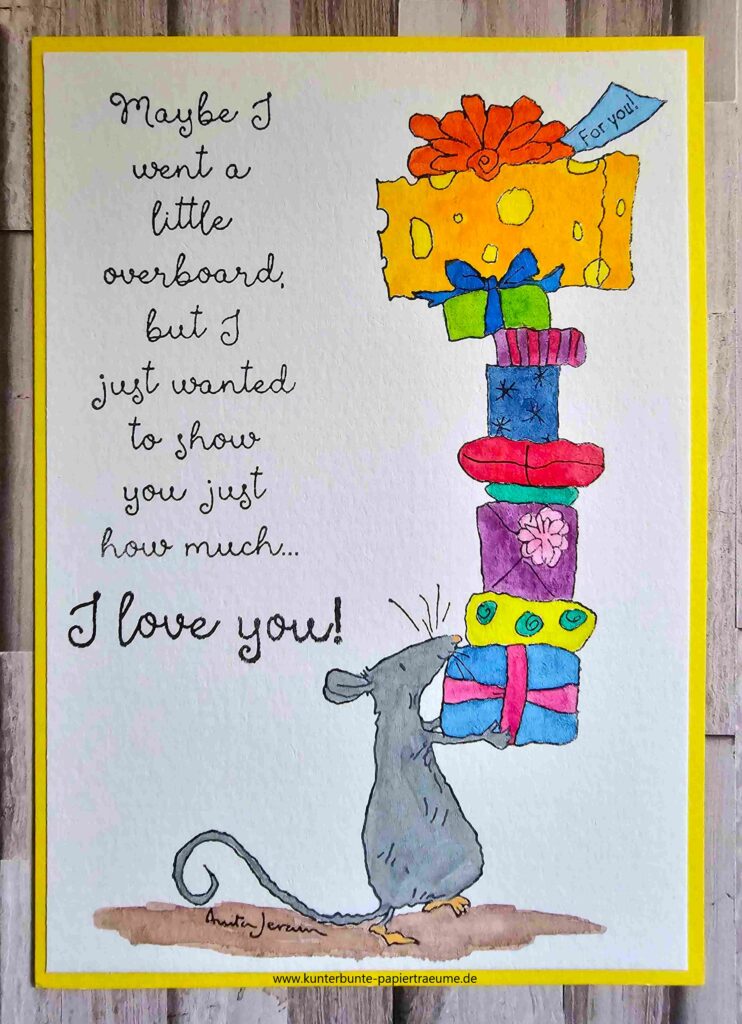 Maybe I
went a
little
overboard,
but I
just wanted
to show
you just
how much...
I love you!
For you!
Anita Jeram
www.kunterbunte-papiertraeume.de